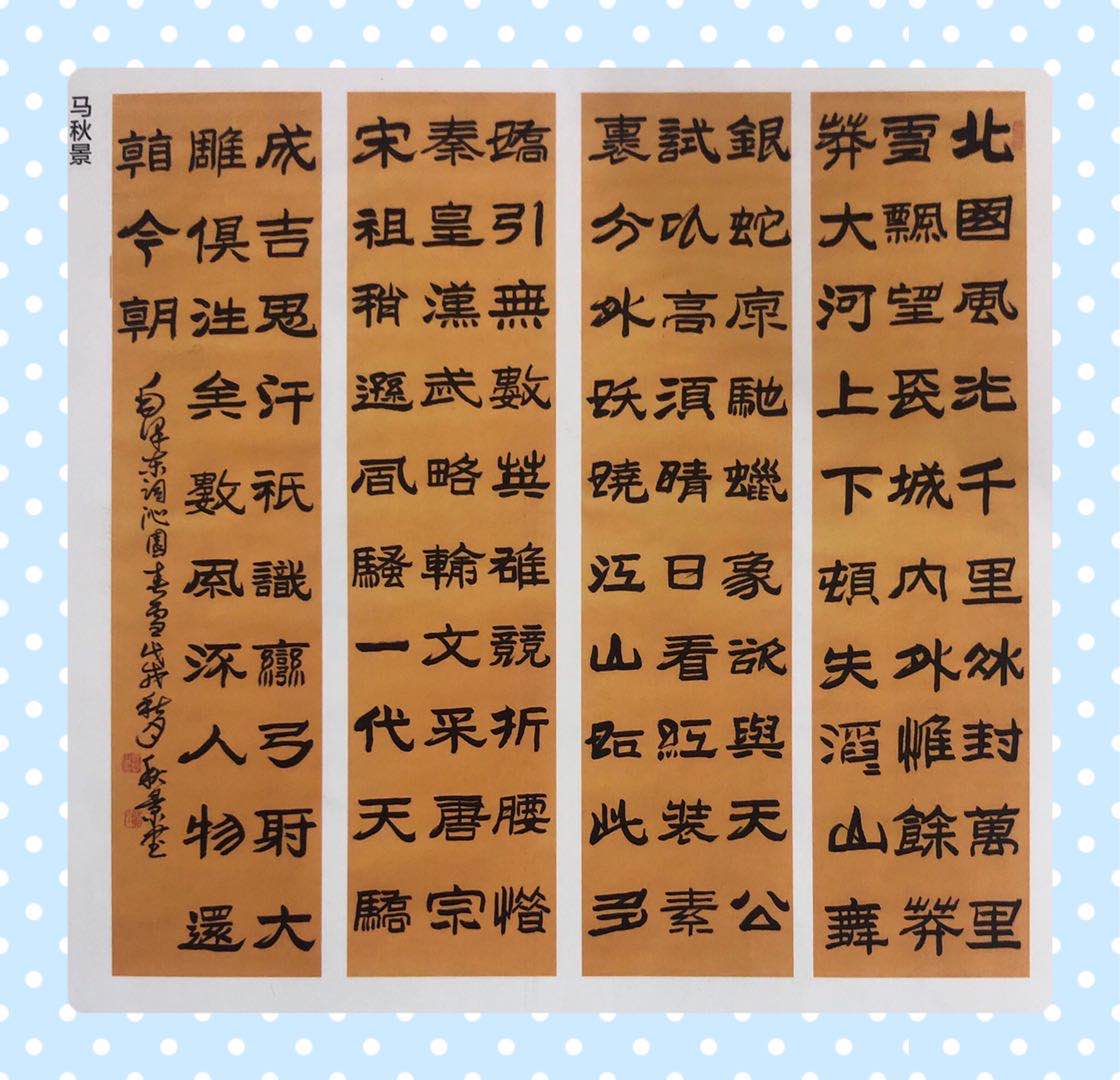 马秋景
北國風光千里冰封萬里
雪飄望長城內外惟餘莽
莽大河上下頓失滔山舞
銀蛇原馳蠟象欲與天公
試比高須晴日看紅裝素
裹分外妖嬈江山如此多
嬌引無數英雄競折腰惜
秦皇漢武略輸文采唐宗
宋祖稍遜風騷一代天驕
成吉思汗祇識彎弓射大
雕俱往矣數風流人物還
看今朝
毛泽东词沁園春雪戊戌秋月秋景书